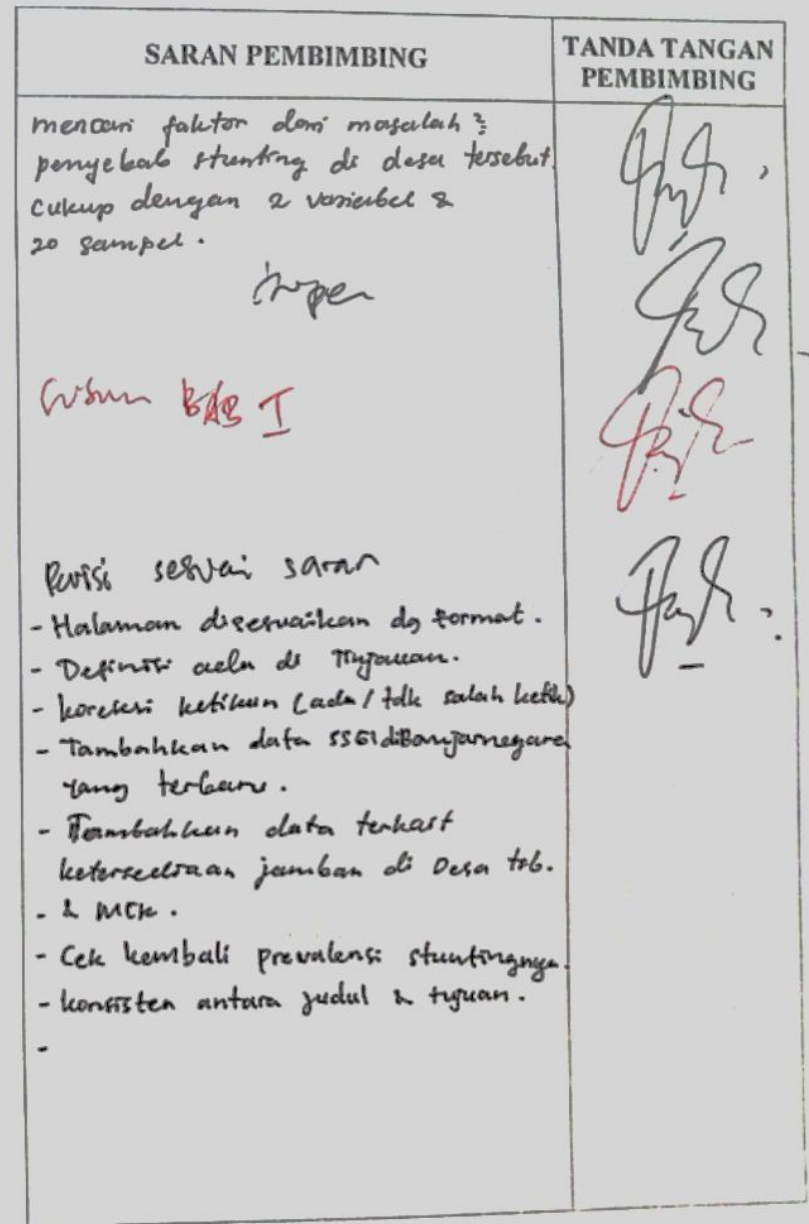 SARAN PEMBIMBING
TANDA TANGAN
PEMBIMBING
mencari faktor dari masalah²
penyebab stunting di desa tersebut.
cukup dengan 2 variabel &
20 sampel.
BAB I
Revisi sesuai saran
- Halaman disesuaikan dg format.
- Definisi ada di Tinjauan.
- koreksi ketikan (ada / tdk salah ketik)
- Tambahkan data SSGI di Banjarnegara
yang terbaru.
- Tambahkan data terkait
ketersediaan jamban di Desa tsb.
- & MCK.
- Cek kembali prevalensi stuntingnya.
- konsisten antara judul & tujuan.
-